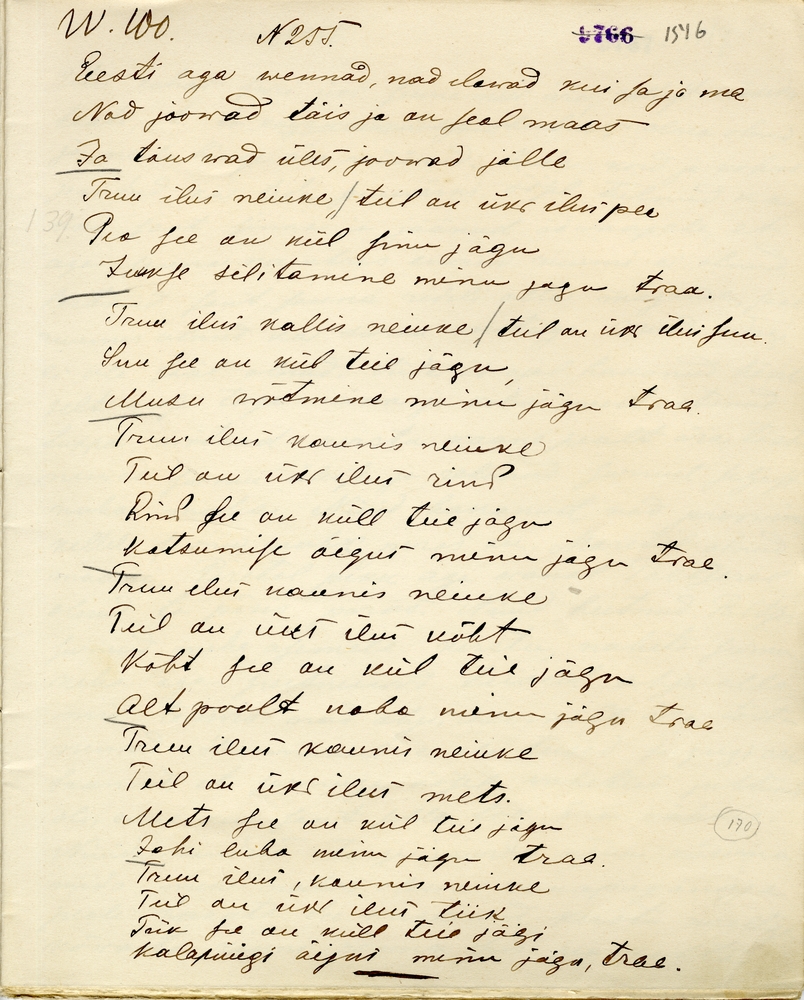 W. 100. N 255. 9766 1516
Eesti aga wennad, nad elawad kui sa ja ma
Nad joowad täis ja on seal maas
Ja tõuswad üles, joowad jälle
139
Truu ilus neiuke / teil on üks ilus pea
Pea see on kül sinu jägu
Jukse silitamine minu jagu traa.
Truu ilus kallis neiuke / teil on üks ilus suu.
Suu see on kül teie jägu,
Musu wõtmine minu jägu traa.
Truu ilus kaunis neiuke
Teil on üks ilus rind
Rind see on küll teie jägu
Katsumise õigus minu jägu trae.
Truu ilus kaunis neiuke
Teil on üks ilus kõht
Kõht see on kül teie jägu
Alt poolt naba minu jägu traa
Truu ilus kaunis neiuke
Teil on üks ilus mets.
Mets see on kül teie jägu
Jahi luba minu jägu traa.
170
Truu ilus, kaunis neiuke
Teil on üks ilus tiik
Tiik see on küll teie jägi
Kalapüügi õigus minu jägu, trae.